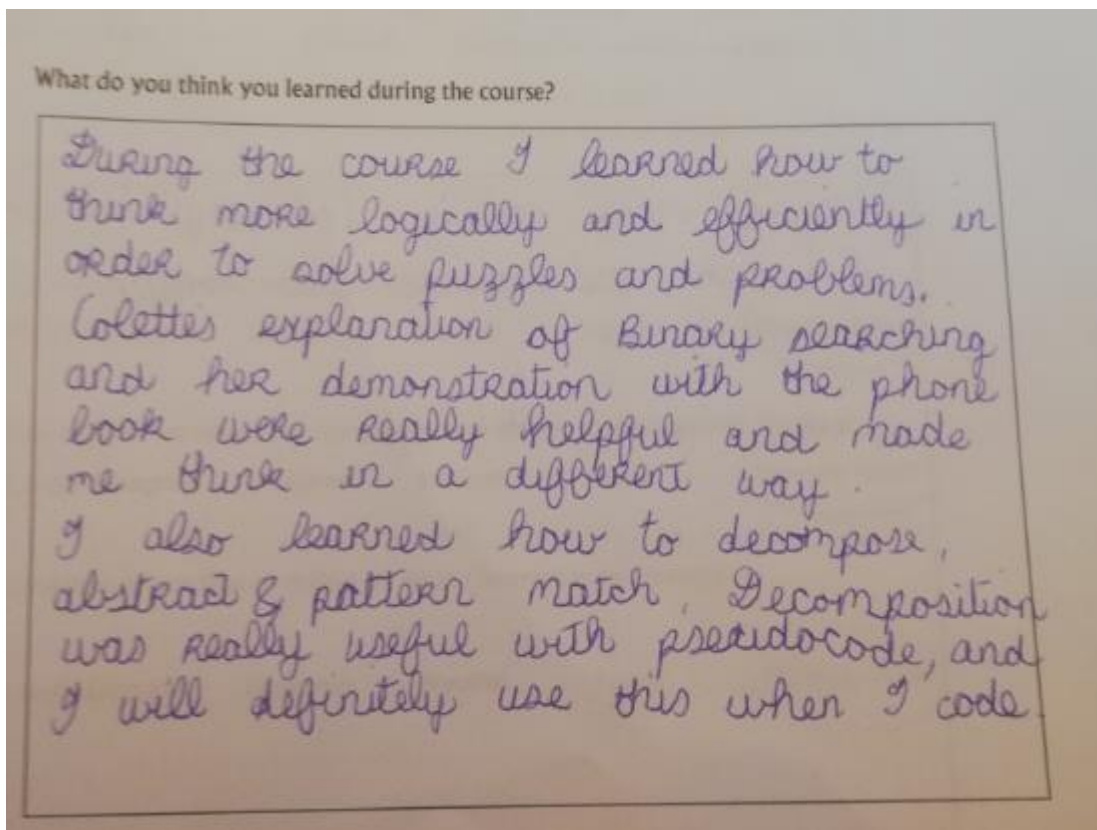 What do you think you learned during the course?
During the course I learned how to
think more logically and efficiently in
order to solve puzzles and problems.
Colette's explanation of Binary searching
and her demonstration with the phone
book were really helpful and made
me think in a different way.
I also learned how to decompose,
abstract & pattern match. Decomposition
was really useful with pseudocode, and
I will definitely use this when I code.